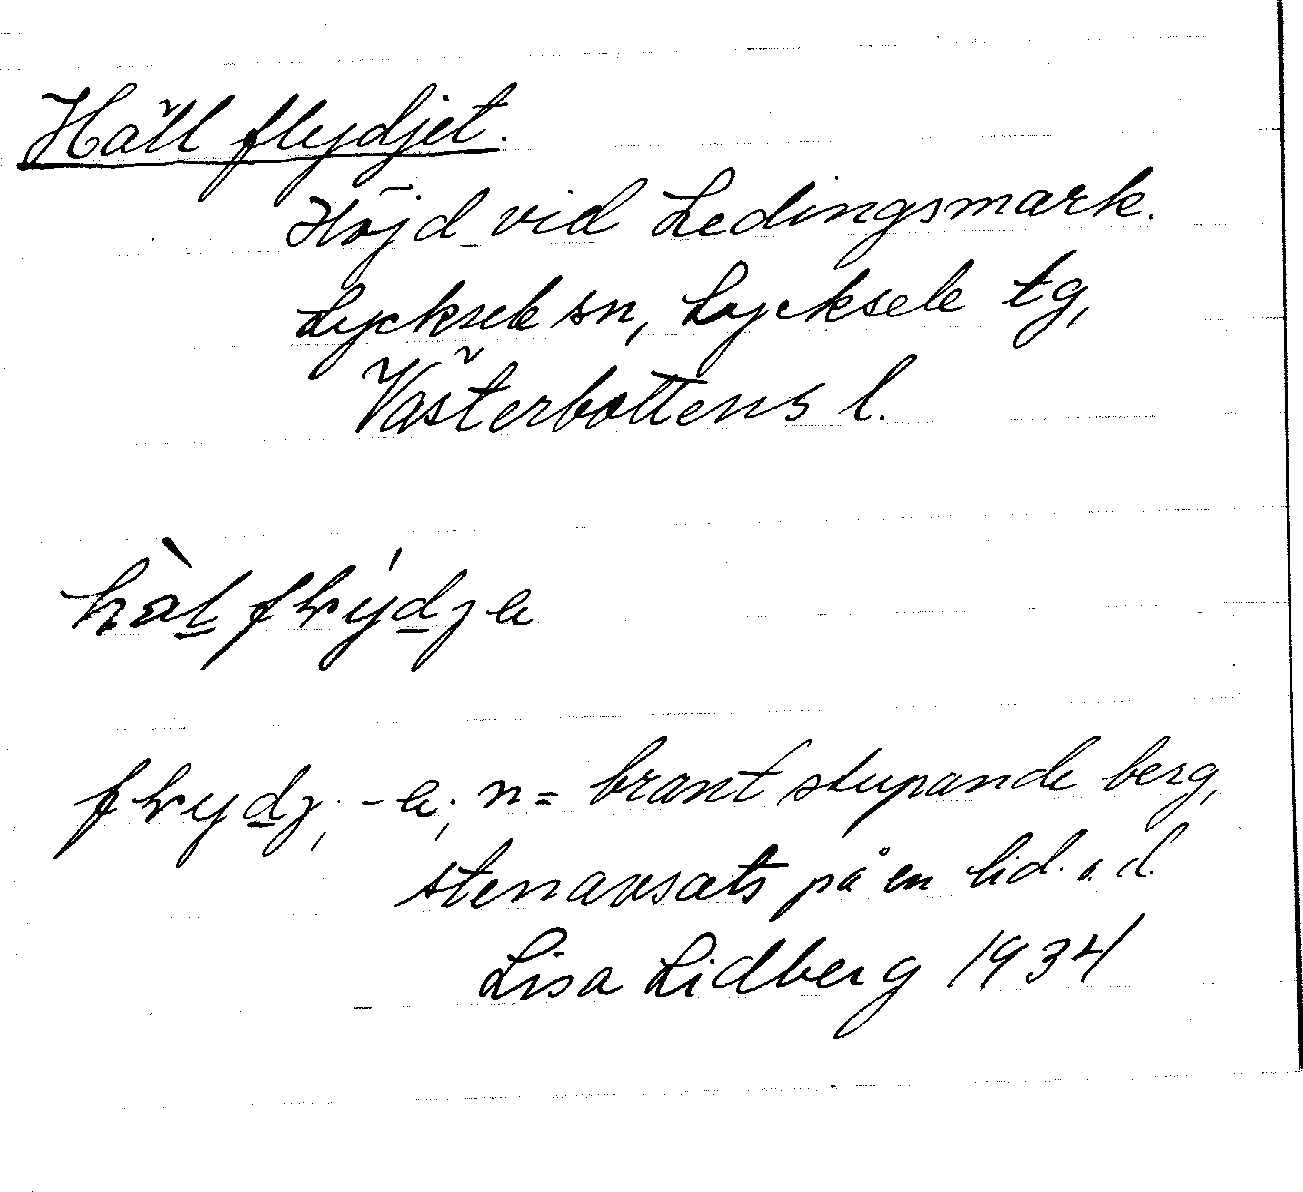 Häll flydjet.
Höjd vid Ledingsmark.
Lycksele sn, Lycksele tg,
Västerbottens l.
flydj, -e, n = brant stupande berg,
stenavsats på en lid. o. d.
Lisa Lidberg 1934